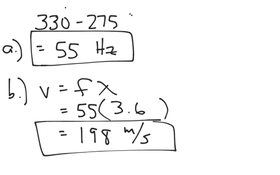 330-275
a.) = 55 Hz
b.) v = fλ
= 55(3.6)
= 198 m/s